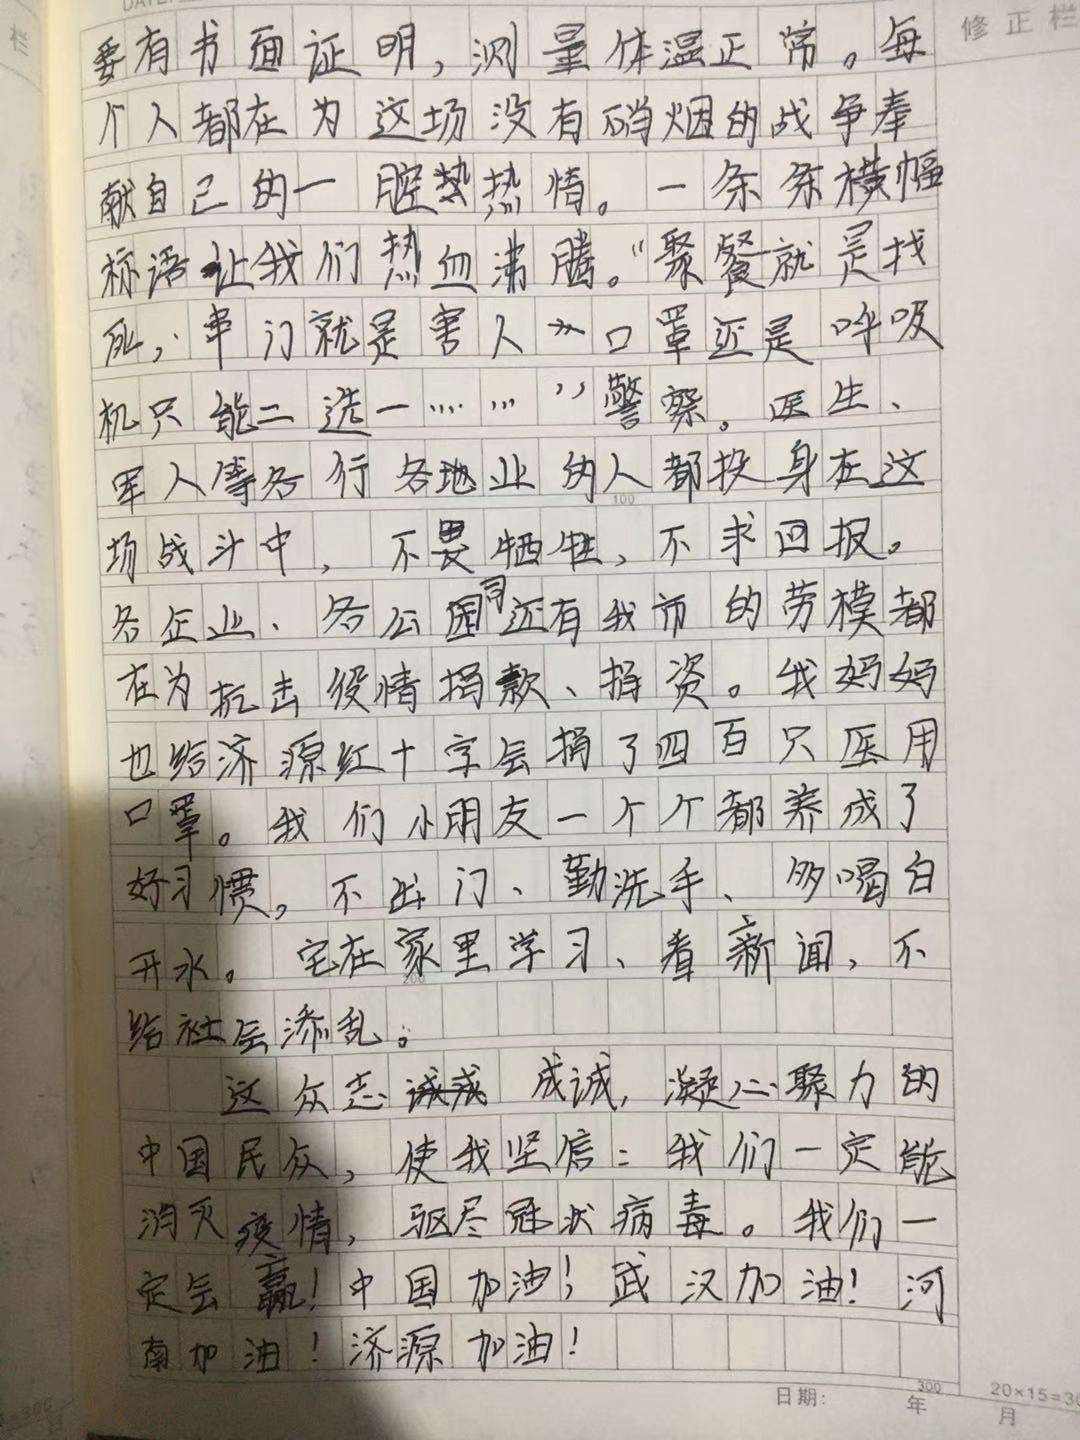 栏
修正栏
要有书面证明,测量体温正常。每
个人都在为这场没有硝烟的战争奉
献自己的一腔热热情。一条条横幅
标语让我们热血沸腾。“聚餐就是找
死,串门就是害人”“口罩还是呼吸
机只能二选一……”警察。医生、
军人等各行各业的人都投身在这
场战斗中,不畏牺牲,不求回报。
各企业、各公司还有我市的劳模都
在为抗击役情捐款、捐资。我妈妈
也给济源红十字会捐了四百只医用
口罩。我们小朋友一个个都养成了
好习惯,不出门、勤洗手、多喝白
开水。宅在家里学习、看新闻,不
给社会添乱。
这众志成诚,凝心聚力的
中国民众,使我坚信:我们一定能
消灭疫情,驱尽冠状病毒。我们一
定会赢!中国加油!武汉加油!河
南加油!济源加油!
100
200
300
日期: 年 月
20×15=3